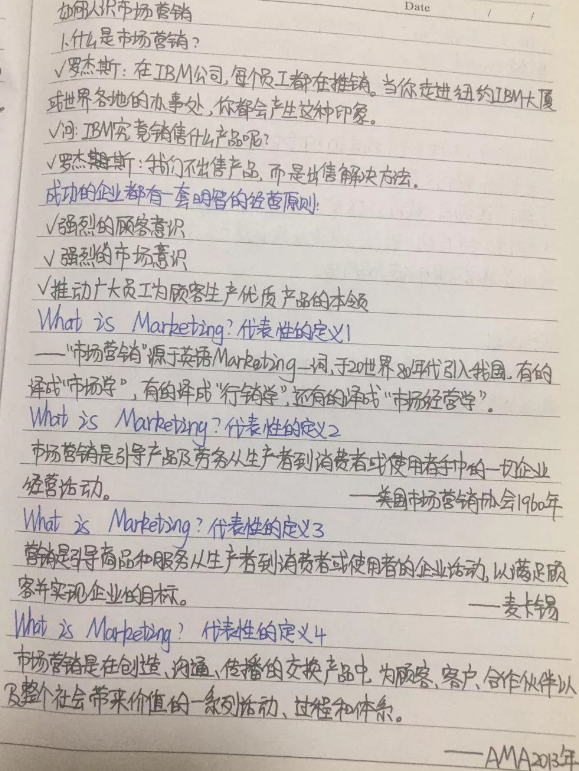 如何认识市场营销
Date / /
1.什么是市场营销?
√罗杰斯:在IBM公司,每个员工都在推销。当你走进纽约IBM大厦
或世界各地的办事处,你都会产生这种印象。
√问:IBM究竟销售什么产品呢?
√罗杰斯:我们不出售产品,而是出售解决方法。
成功的企业都有一套明智的经营原则:
√强烈的顾客意识
√强烈的市场意识
√推动广大员工为顾客生产优质产品的本领
What is Marketing?代表性的定义1
——"市场营销"源于英语Marketing一词,于20世界80年代引入我国,有的
译成"市场学",有的译成"行销学",还有的译成"市场经营学"。
What is Marketing?代表性的定义2
市场营销是引导产品及劳务从生产者到消费者或使用者手中的一切企业
经营活动。 ——美国市场营销协会1960年
What is Marketing?代表性的定义3
营销是引导商品和服务从生产者到消费者或使用者的企业活动,以满足顾
客并实现企业的目标。 ——麦卡锡
What is Marketing? 代表性的定义4
市场营销是在创造、沟通、传播的交换产品中,为顾客、客户、合作伙伴以
及整个社会带来价值的一系列活动、过程和体系。
——AMA2013年